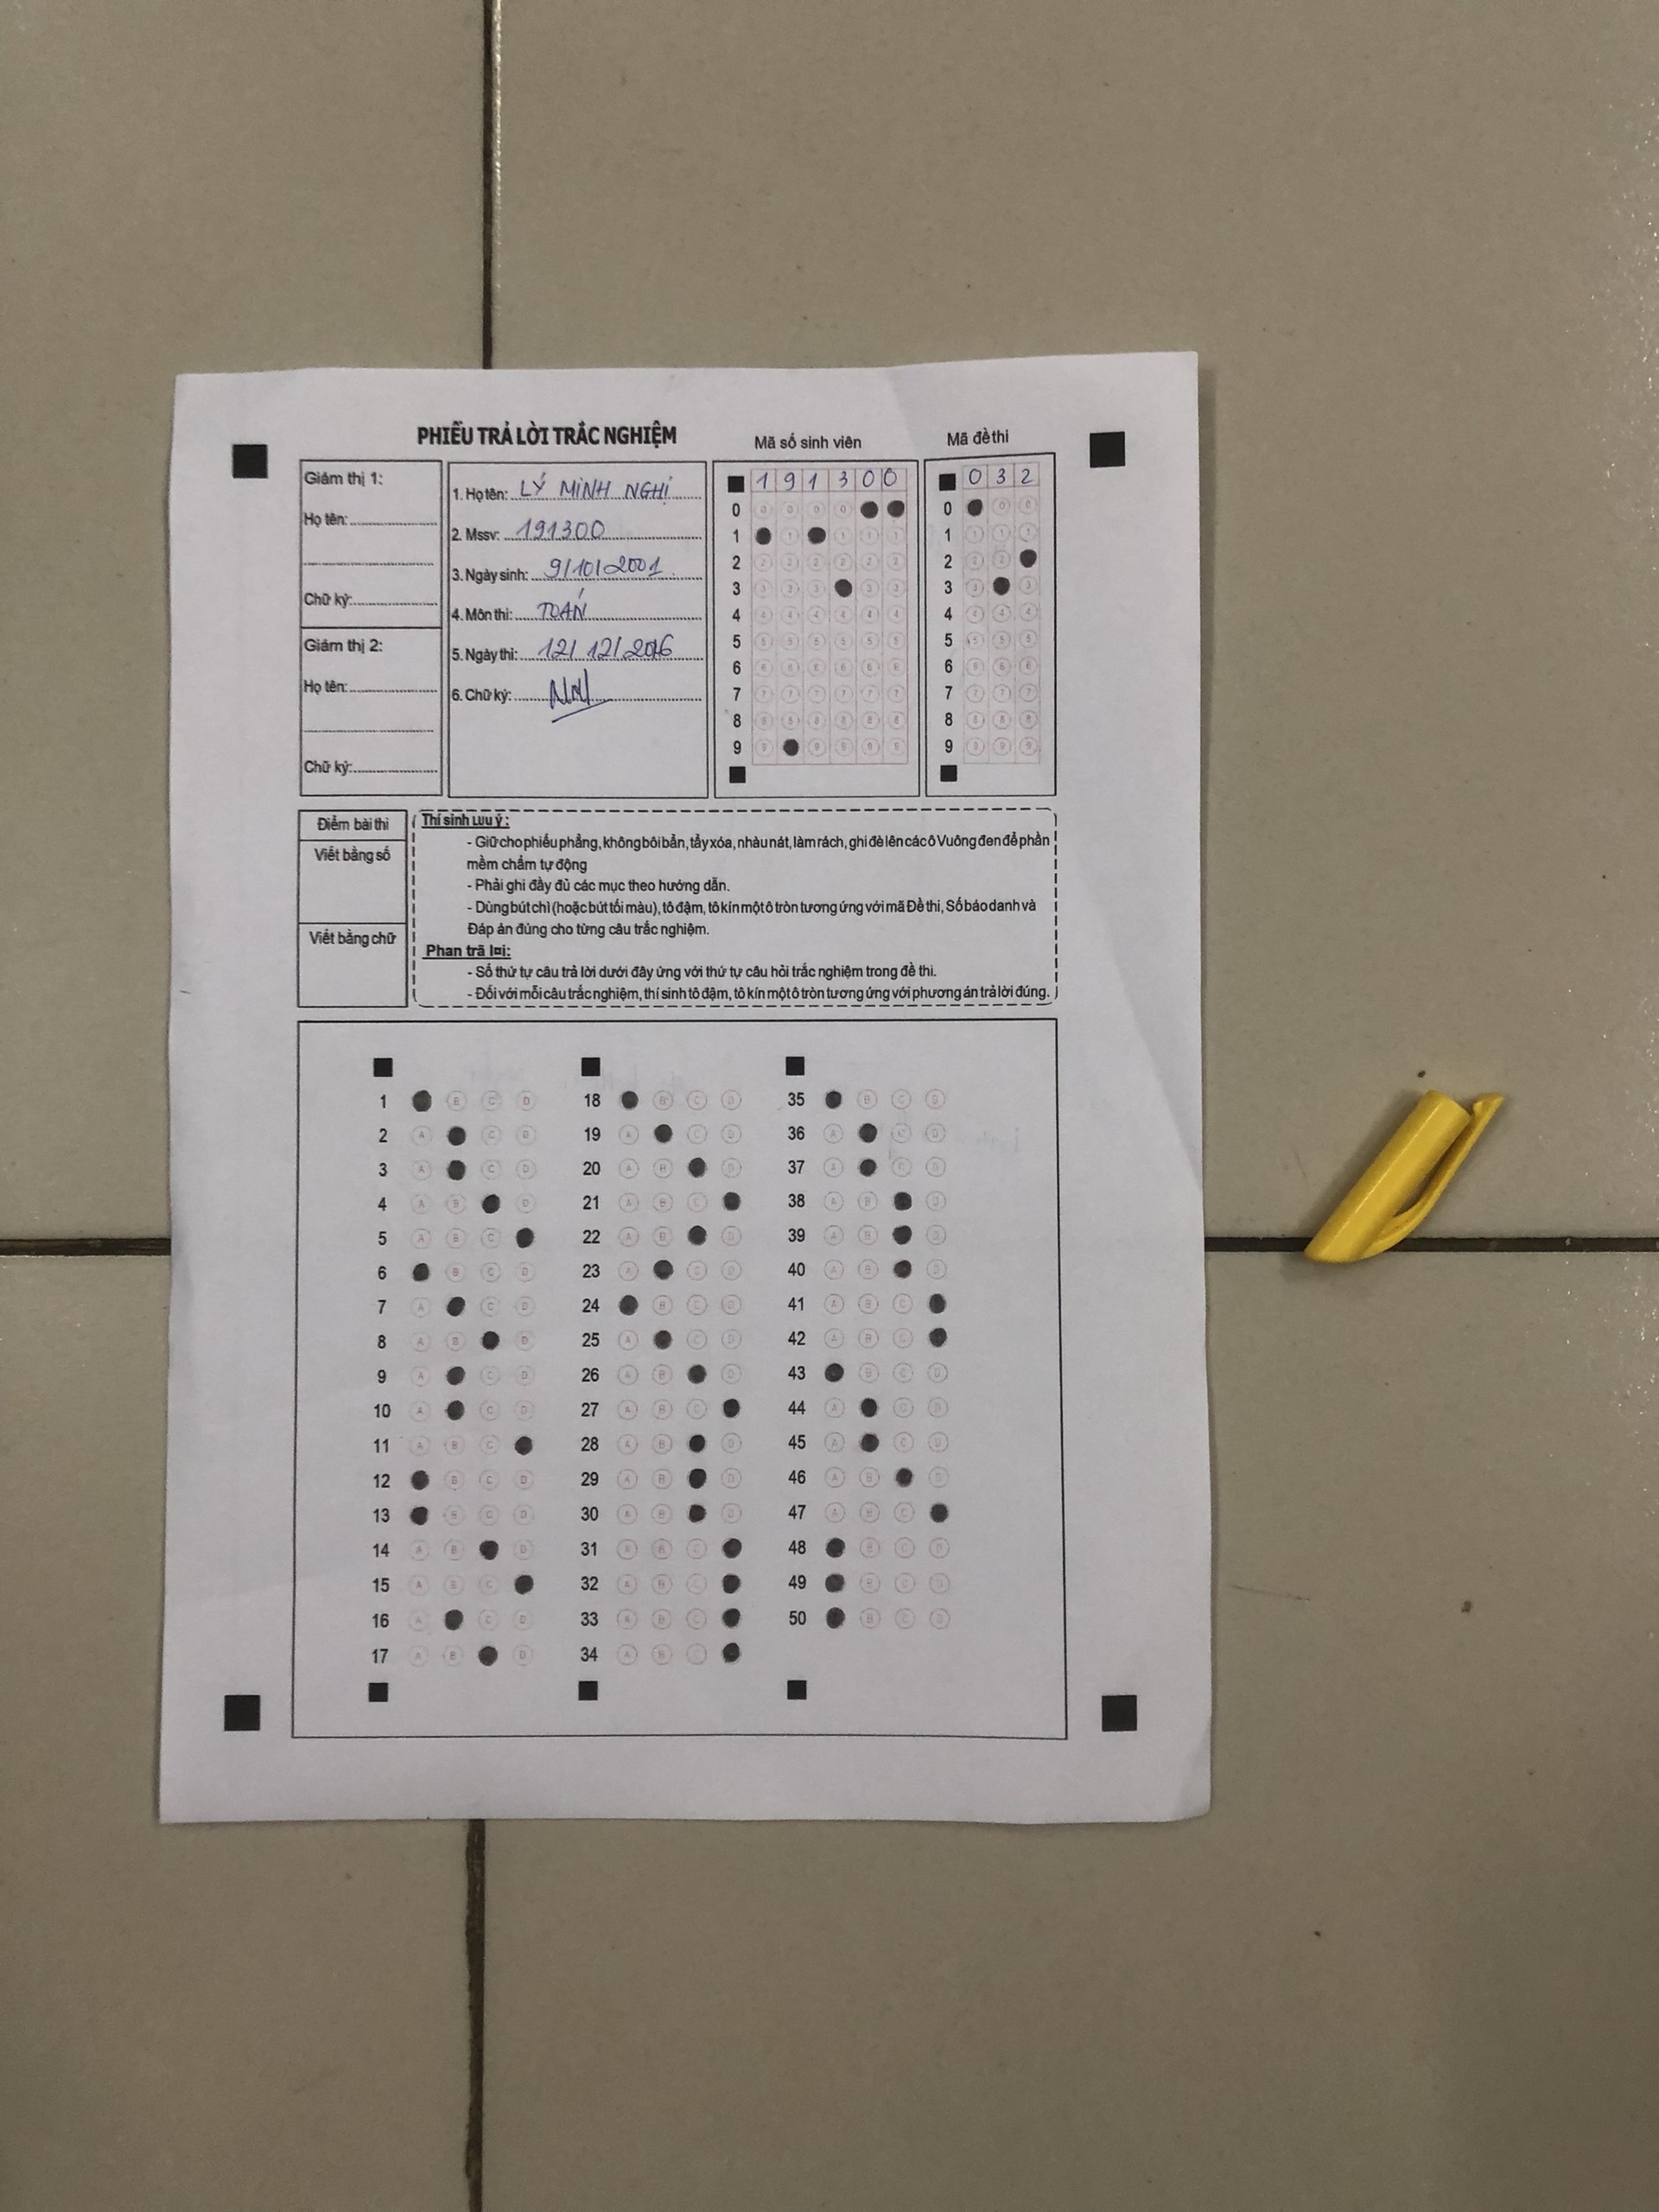 PHIẾU TRẢ LỜI TRẮC NGHIỆM
Mã số sinh viên
Mã đề thi
Giám thị 1:
Họ tên:
Chữ ký:
Giám thị 2:
Họ tên:
Chữ ký:
1. Họ tên: LÝ MINH NGHỊ
2. Mssv: 191300
3. Ngày sinh: 9/10/2001
4. Môn thi: TOÁN
5. Ngày thi: 12/12/2016
6. Chữ ký:
1 9 1 3 0 0
0
1
2
3
4
5
6
7
8
9
0 3 2
0
1
2
3
4
5
6
7
8
9
Điểm bài thi
Viết bằng số
Viết bằng chữ
Thí sinh lưu ý:
- Giữ cho phiếu phẳng, không bôi bẩn, tẩy xóa, nhàu nát, làm rách, ghi đè lên các ô Vuông đen để phần
mềm chấm tự động
- Phải ghi đầy đủ các mục theo hướng dẫn.
- Dùng bút chì (hoặc bút tối màu), tô đậm, tô kín một ô tròn tương ứng với mã Đề thi, Số báo danh và
Đáp án đúng cho từng câu trắc nghiệm.
Phan trã lơi:
- Số thứ tự câu trả lời dưới đây ứng với thứ tự câu hỏi trắc nghiệm trong đề thi.
- Đối với mỗi câu trắc nghiệm, thí sinh tô đậm, tô kín một ô tròn tương ứng với phương án trả lời đúng.
1 B C D
2 A C D
3 A C D
4 A B D
5 A B C
6 B C D
7 A C D
8 A B D
9 A C D
10 A C D
11 A B C
12 B C D
13 B C D
14 A B D
15 A B C
16 A C D
17 A B D
18 B C D
19 A C D
20 A B D
21 A B C
22 A B D
23 A C D
24 B C D
25 A C D
26 A B D
27 A B C
28 A B D
29 A B D
30 A B D
31 A B C
32 A B C
33 A B C
34 A B C
35 B C D
36 A C D
37 A C D
38 A B D
39 A B D
40 A B D
41 A B C
42 A B C
43 B C D
44 A C D
45 A C D
46 A B D
47 A B C
48 B C D
49 B C D
50 B C D